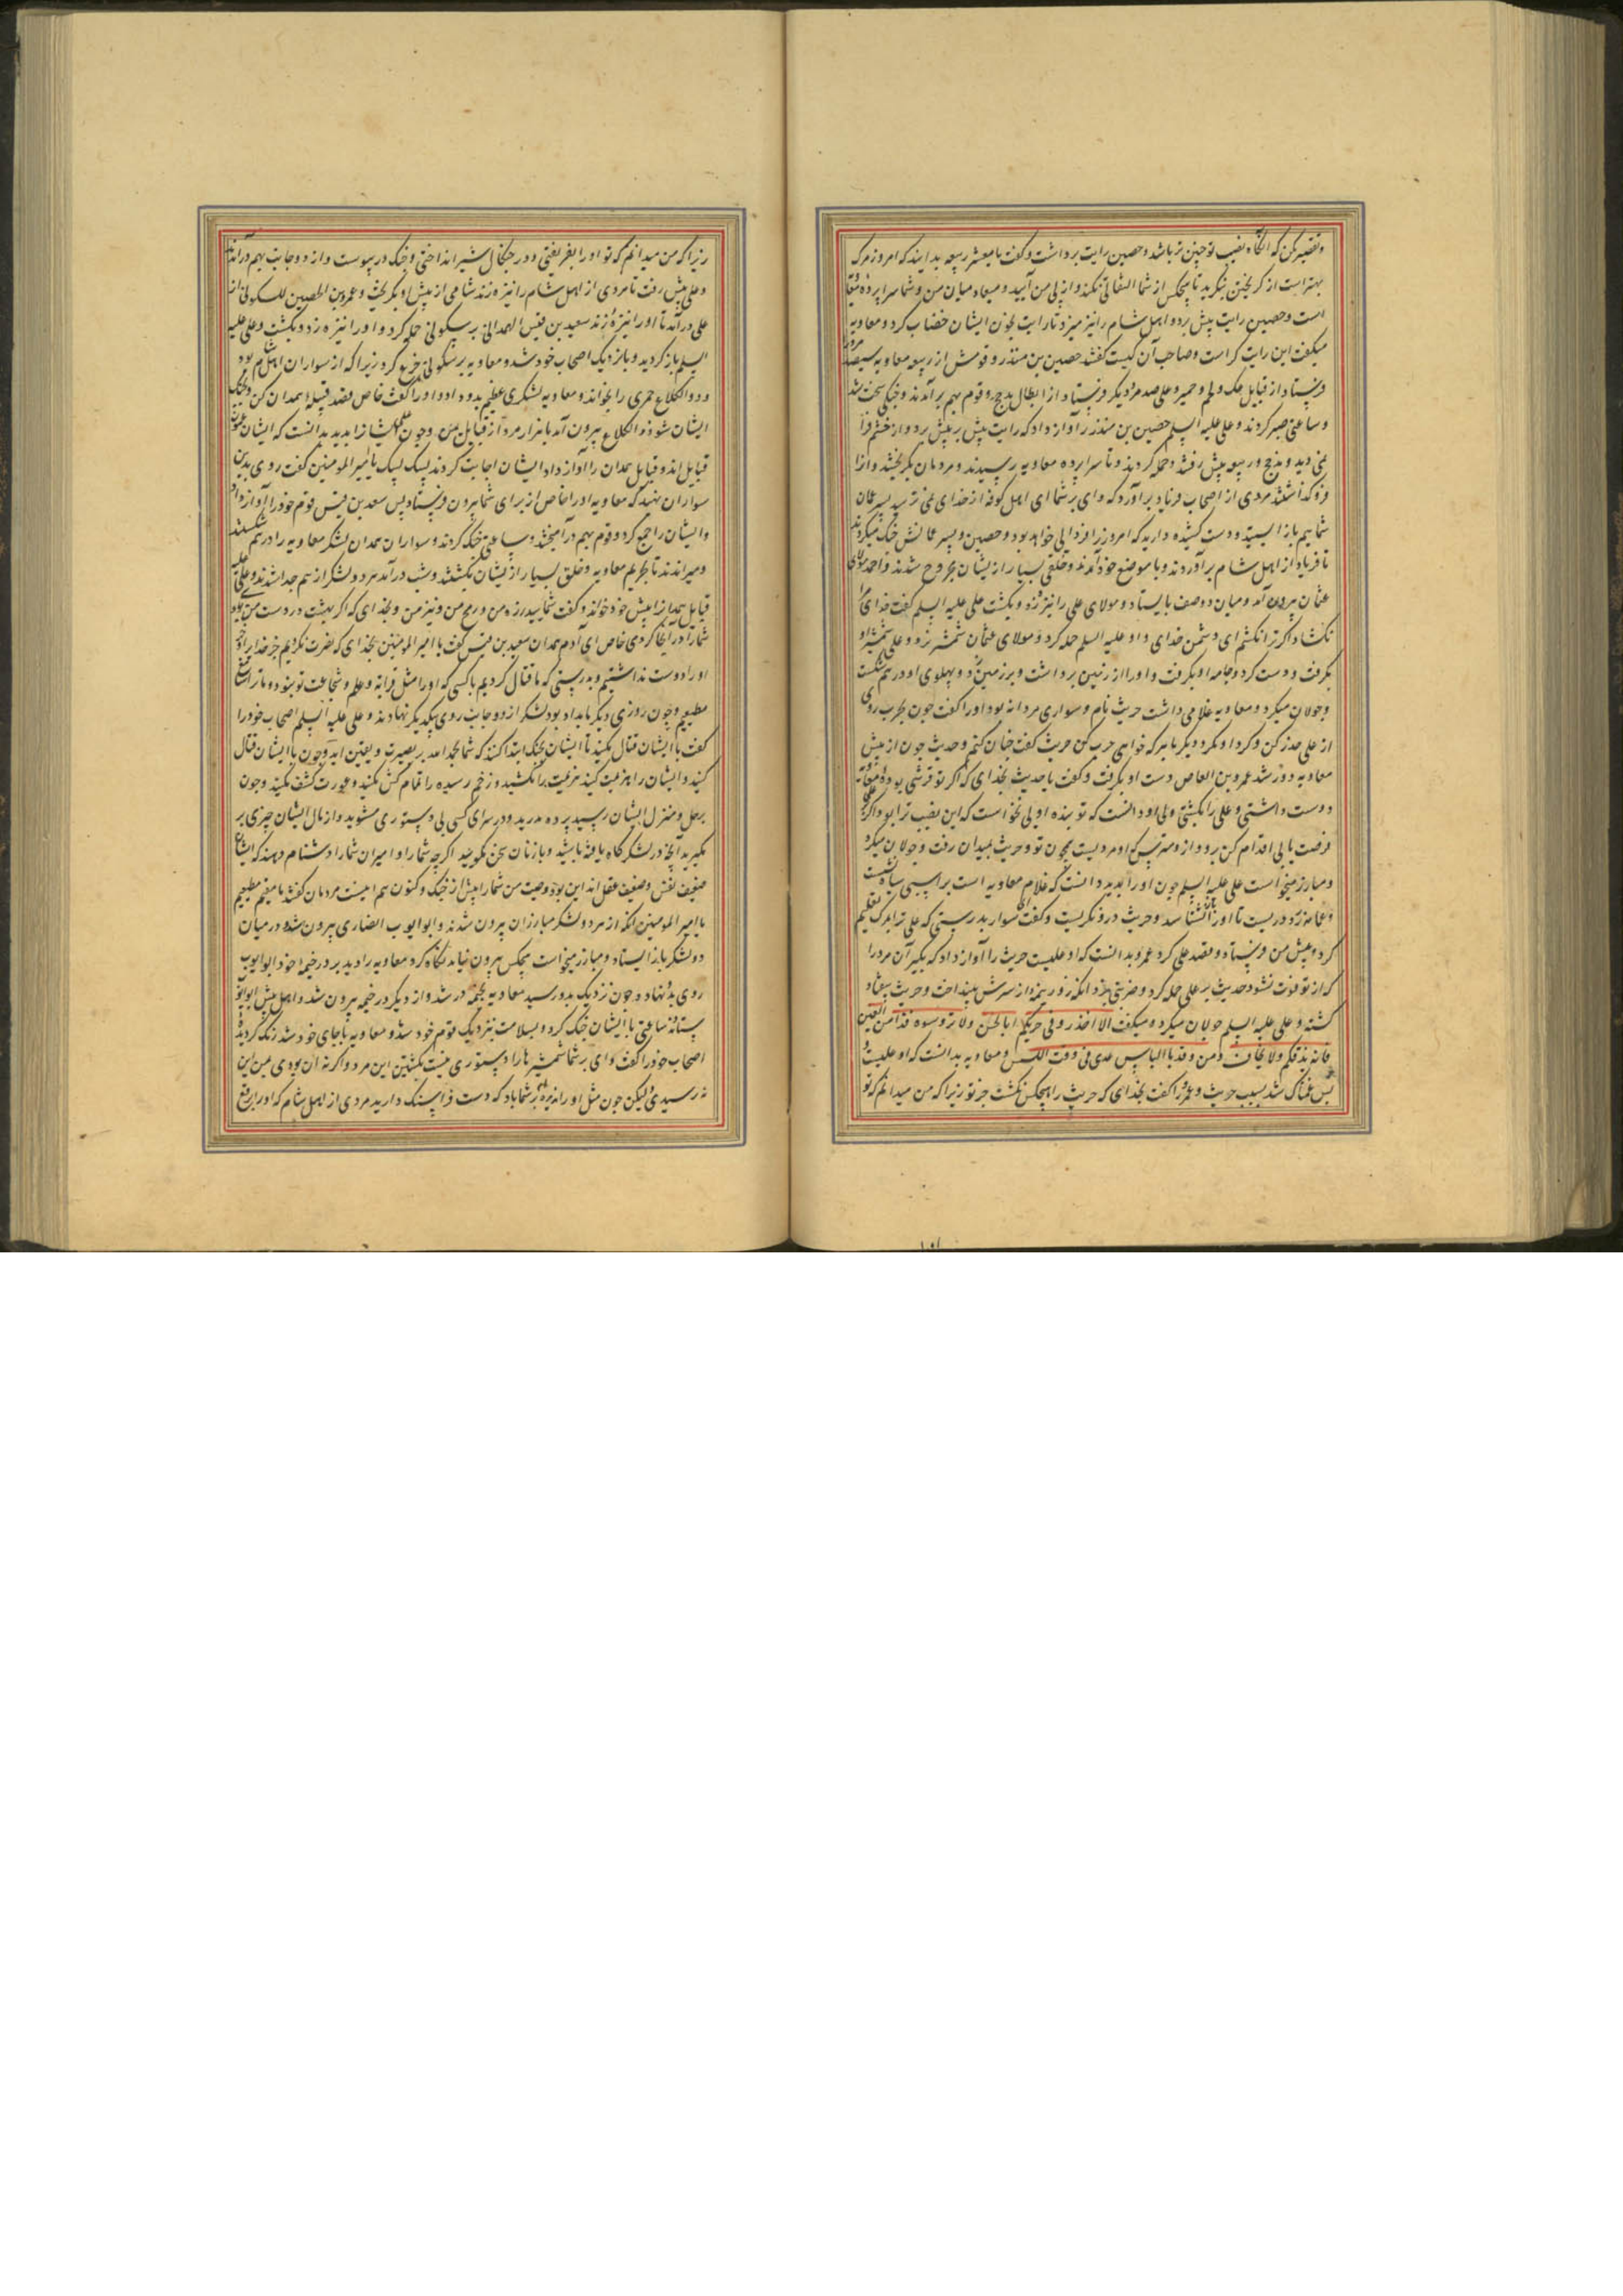 و تقصیر مکن که آنگاه نصیب تو چنین تر باشد و حصین رایت برداشت و گفت یا معشر ربیعه بدانید که امروز مرگ
بهتر است از گریختن بنگرید تا هیچکس از شما التفاتی نکند و از پی من آیید و میعاد میان من و شما سراپرده معاویه
است و حصین رایت پیش برد و اهل شام را نیز میزد تا رایت بخون ایشان خضاب کرد و معاویه
میگفت این رایت کراست و صاحب آن کیست گفتند حصین بن منذر و قومش از ربیعه معاویه سیصد مرد
فرستاد از قبایل عک و لخم و حمیر و علی صد مرد دیگر فرستاد از ابطال مذحج و قوم بهم برآمدند و جنگی سخت شد
و ساعتی صبر کردند و علی علیه السلم حصین بن منذر را آواز داد که رایت پیش بر پیش برد و از خشم فرا
نمی دید و مذحج و ربیعه پیش رفتند و حمله کردند و تا سراپرده معاویه رسیدند و مردمان بگریختند و او را
فرو گذاشتند مردی از اصحاب فریاد برآورد که وای بر شما ای اهل کوفه از خدای نمی ترسید پسر عمان
شما بیم باز ایستید و دست کشیده دارید که امروز را فردایی خواهد بود و حصین و پسر عمانش جنگ میکردند
تا فریاد از اهل شام برآوردند و با موضع خود آمدند و خلقی بسیار از ایشان مجروح شدند و احمر مولای
عثمان بیرون آمد و میان دو صف بایستاد و مولای علی را نیزه زد و بکشت علی علیه السلم گفت خدای مرا
بکشاد اگر ترا نکشم ای دشمن خدای و او علیه السلم حمله کرد و مولای عثمان شمشیر زد و علی شمشیر او
بگرفت و دست کرد و جامه او بگرفت و او را از زمین برداشت و بر زمین زد و پهلوی او درهم شکست
و جولان میکرد و معاویه غلامی داشت حریث نام و سواری مردانه بود او را گفت چون بحرب روی
از علی حذر کن و گرد او مگرد و دیگر با هر که خواهی حرب کن حریث گفت چنان کنم و حدیث چون از پیش
معاویه دور شد عمرو بن العاص دست او بگرفت و گفت یا حدیث بخدای که اگر تو قرشی بودی معاویه
دوست داشتی و علی را بکشتی ولی او دانست که تو بنده او لی نخواست که این نصیب ترا بود اگر علی
فرصت یابی اقدام کن برو و از و مترس که او مردیست همچون تو و حریث بمیدان رفت و جولان میکرد
و مبارز میخواست علی علیه السلم چون او را بدید دانست که غلام معاویه است بر اسپی سیاه نشست
و عمامه زرد در بست تا او را نشناسد و حریث درو نگریست و گفت ای سوار بدرستی که علی ترا بمرگ تسلیم
کرد و پیش من فرستاد و قصد علی کرد عمرو بدانست که او علیست حریث را آواز داد که بگیر آن مرد را
که از تو فوت نشود حدیث بر علی حمله کرد و ضربتی بزد آنکه زور نیزه و از سرش بینداخت و حریث بیفتاد
کشته و علی علیه السلم جولان میکرد و میگفت الا احذروا فی حربکم ابا الحسن ولا تروموه فذا من الغبن
فانه یدقکم ولا یخاف و من وقد یا الباس عدی فی وقت اللبس و معاویه بدانست که او علیست
پس غمناک شد بسبب حریث و عمرو را گفت بخدای که حریث را هیچکس نکشت جز تو زیرا که من میدانم که تو
زیرا که من میدانم که تو او را بفریفتی و در چنگال شیر انداختی و جنگ در پیوست و از دو جانب بهم درآمدند
و علی پیش رفت تا مردی از اهل شام را نیزه زند شامی از پیش او بگریخت و عمرو بن الحصین للسکونی از
علی درآمد تا او را نیزه زند سعید بن قیس الهمدانی بر سکونی حمله کرد و او را نیزه زد و بکشت و علی علیه
السلم بازگردید و با نزدیک اصحاب خود شد و معاویه بر سکونی جزع کرد زیرا که از سواران اهل شام بود
و ذو الکلاع حمیری را بخواند و معاویه لشکری عظیم بدو داد و او را گفت خاص قصد قبیله همدان کن و بجنگ
ایشان شو ذو الکلاع بیرون آمد با هزار مرد از قبایل یمن و چون علی ایشانرا بدید بدانست که ایشان عیون
قبایل اند و قبایل همدان را آواز داد ایشان اجابت کردند لبیک لبیک یا امیر المومنین گفت روی بدین
سواران نهید که معاویه او را خاص از برای شما بیرون فرستاد پس سعد بن قیس قوم خود را آواز داد
و ایشان را جمع کرد و قوم بهم درآمیختند و ساعتی جنگ کردند و سواران همدان لشکر معاویه را درهم شکستند
و میراندند تا بحریم معاویه و خلق بسیار از ایشان بکشتند و شب درآمد هر دو لشکر از هم جدا شدند و علی علیه
قبایل همدان را پیش خود خواند و گفت شمایید زره من و رمح من و نیزه من و بخدای که اگر بهشت در دست من بود
شما را در آنجا کردمی خاص ای آدم همدان سعید بن قیس گفت یا امیر المومنین بخدای که نصرت نکردیم جز خدای را و جز
او را دوست نداشتیم و بدرستی که ما قتال کردیم با کسی که او را مثل قرابه و علم و شجاعت تو نبود و ما ترا سامع
مطیعیم و چون روزی دیگر بامداد بود لشکر از دو جانب روی بیکدیگر نهادند و علی علیه السلم اصحاب خود را
گفت با ایشان قتال مکنید تا ایشان بجنگ ابتدا کنند که شما بحمد الله بر بصیرت و یقین اید و چون با ایشان قتال
کنید و ایشان را هزیمت کنید هزیمت را مکشید و زخم رسیده را تمام کش مکنید و عورت کشف مکنید و چون
برحل و منزل ایشان رسید پرده مدرید و در سرای کسی بی دستوری مشوید و از مال ایشان چیزی بر
مگیرید آنچه در لشکرگاه یافته باشید و با زنان سخن مگویید اگرچه شما را و امیران شما را دشنام دهند که ایشان
ضعیف نفس و ضعیف عقل اند این بود وصیت من شما را پیش از جنگ و کنون هم اینست مردمان گفتند سامعیم مطیعیم
یا امیر المومنین آنکه از هر دو لشکر مبارزان بیرون شدند و ابو ایوب انصاری بیرون شد و در میان
دو لشکر باز ایستاد و مبارز میخواست هیچکس بیرون نیامد نگاه کرد معاویه را دید بر در خیمه خود ابو ایوب
روی بدو نهاد و چون نزدیک بدو رسید معاویه بخیمه در شد و از دیگر در خیمه بیرون شد و اهل پیش ابو ایوب
بستاد ساعتی با ایشان جنگ کرد و بسلامت بنزدیک قوم خود شد و معاویه با جای خود شد رنگ گردیده
اصحاب خود را گفت وای بر شما شمشیرها را دستوری نیست بکشتن این مرد و اگر نه آن بودی بمن این
نه رسیدی و لیکن چون مثل او را نبرد بر شما باد که دست فرا سنگ دارید مردی از اهل شام که او را مرفع